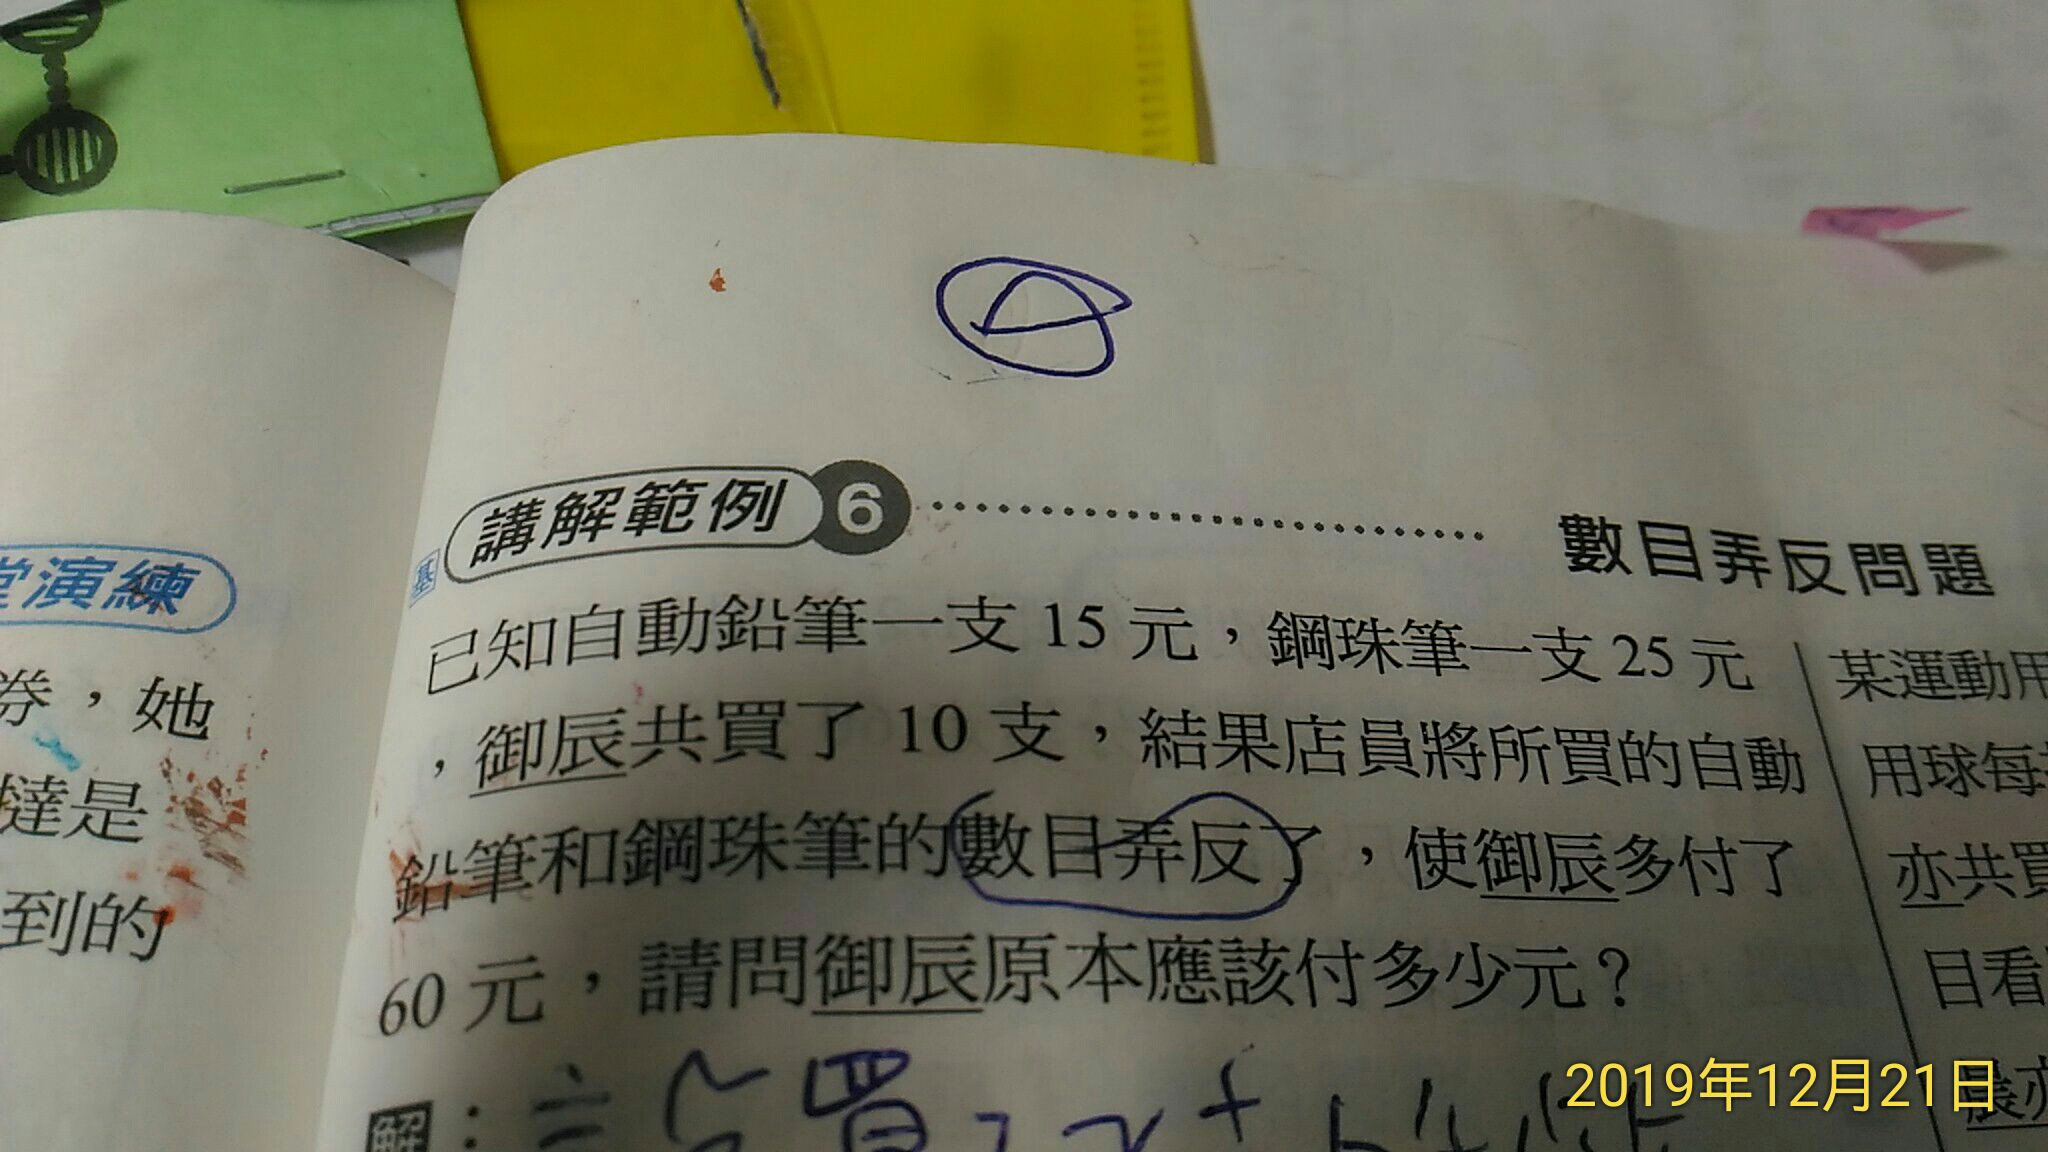 講解範例 6 數目弄反問題
基
已知自動鉛筆一支 15 元，鋼珠筆一支 25 元
，御辰共買了 10 支，結果店員將所買的自動
鉛筆和鋼珠筆的數目弄反了，使御辰多付了
60 元，請問御辰原本應該付多少元？
解：
演練
券，她
撻是
到的
某運動用
用球每
亦共買
目看
張亦
2019年12月21日